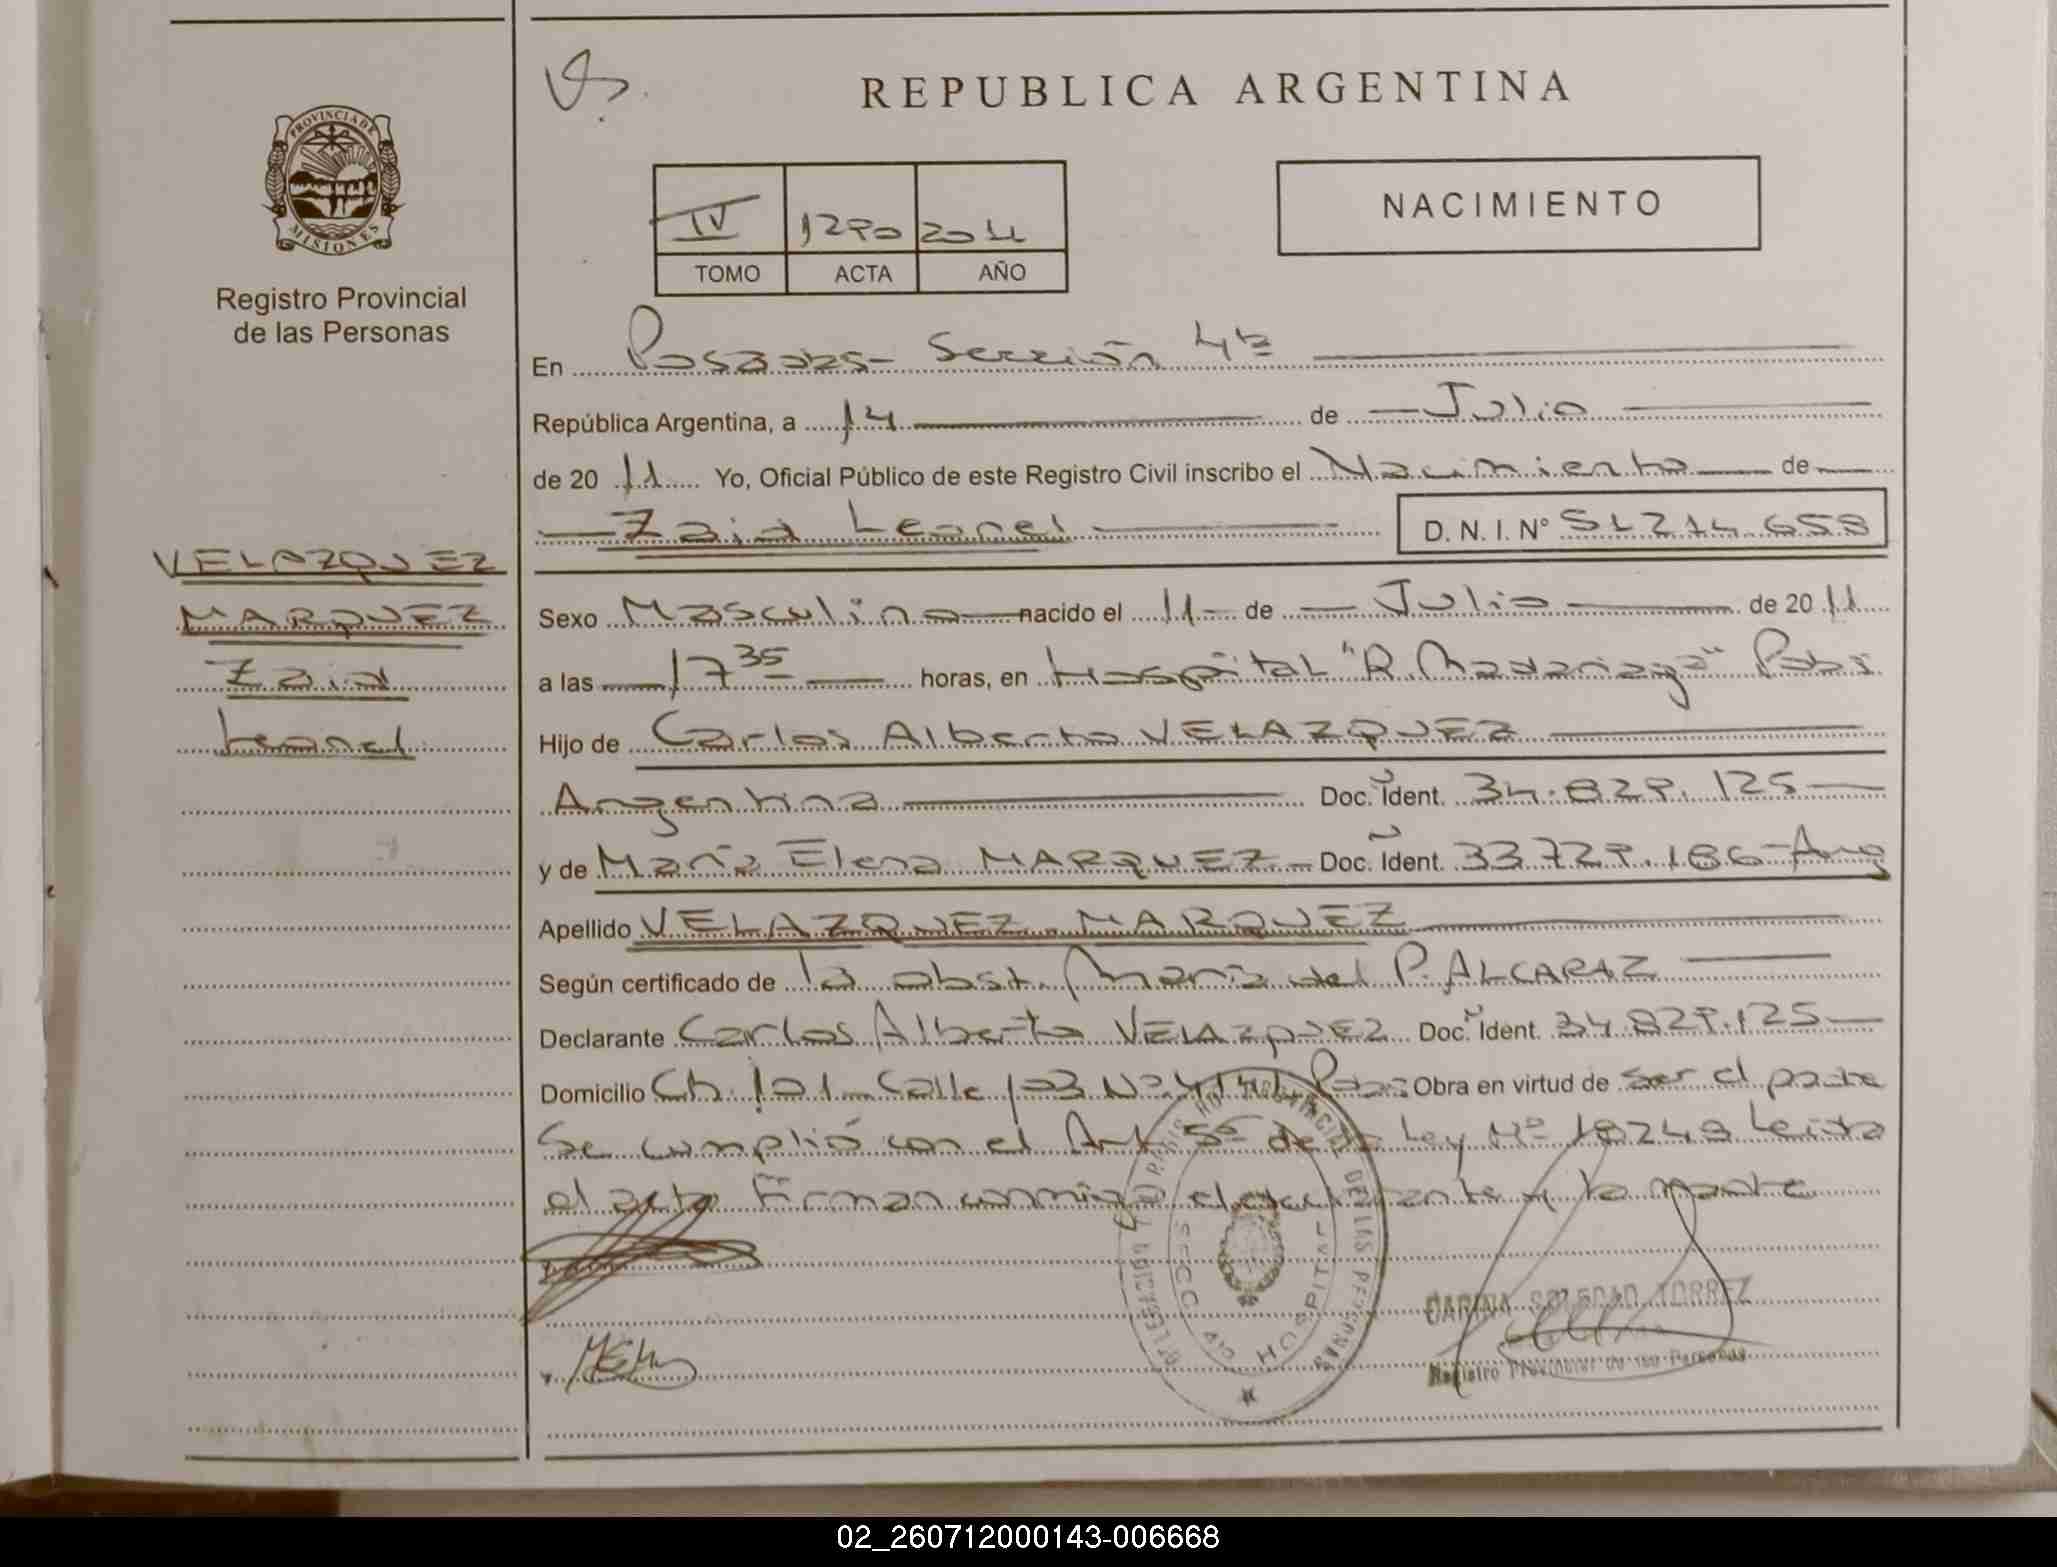 REPUBLICA ARGENTINA
PROVINCIA DE
MISIONES
Registro Provincial
de las Personas
NACIMIENTO
IV 1290 2011
TOMO ACTA AÑO
En Posadas - Sección 4ta
República Argentina, a 14 de Julio
de 2011 Yo, Oficial Público de este Registro Civil inscribo el Nacimiento de
Zaid Leonel D. N. I. N° 51.214.658
VELAZQUEZ
MARQUEZ
Zaid
Leonel
Sexo Masculino nacido el 11 de Julio de 2011
a las 17 35 horas, en Hospital "R. Madariaga" Pdas.
Hijo de Carlos Alberto VELAZQUEZ
Argentina Doc. Ident. 34.829.125
y de María Elena MARQUEZ - Doc. Ident. 33.729.186 - Arg
Apellido VELAZQUEZ MARQUEZ
Según certificado de la obst. María del P. ALCARAZ
Declarante Carlos Alberto VELAZQUEZ Doc. Ident. 34.829.125
Domicilio Ch. 101 - Calle 103 Nº 4141 Pdas. Obra en virtud de ser el padre
Se cumplió con el Art. 5º de la Ley Nº 18248 Leida
el acta firman conmigo el declarante y la madre
REGISTRO PROVINCIAL DE LAS PERSONAS
DELEGACION
SECC 4ta HOSPITAL
CARINA SOLEDAD TORREZ
Registro Provincial de las Personas
02_260712000143-006668